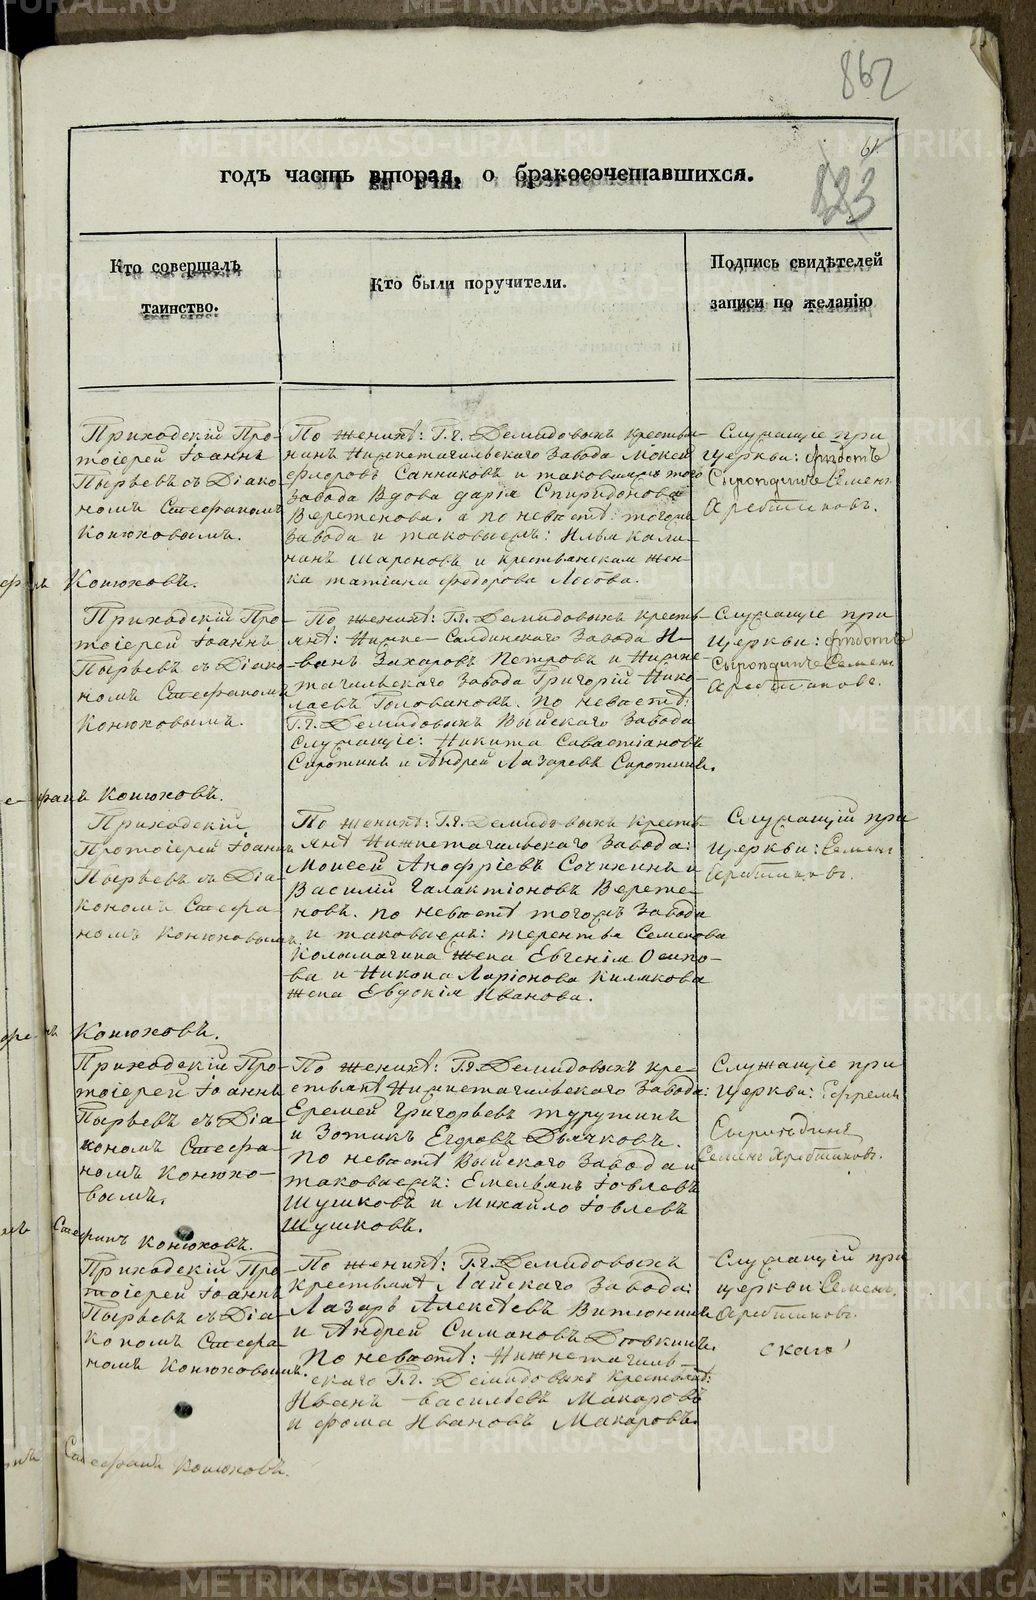 METRIKI.GASO-URAL.RU
862
61.
883
годъ часть вторая, о бракосочетавшихся.
Кто совершалъ
таинство.
Кто были поручители.
Подпись свидѣтелей
записи по желанію
Приходскій Про-
тоіерей Іоаннъ
Пырьевъ съ Діако-
номъ Стефаномъ
Конюховымъ.
По женихѣ: Г.г. Демидовыхъ крестья-
нинъ Нижнетагильскаго Завода Мокей
Флоровъ Санниковъ и таковаго тогожъ
Завода Вдова Дарія Спиридонова
Вереженова. а по невѣстѣ: тогожъ
Завода и таковыежъ: Илья Кали-
нинъ Шароновъ и крестьянская жен-
ка татіана федорова Лосова.
Служащіе при
Церкви:
Семенъ
Арефтиковъ.
Конюховъ.
Приходскій Про-
тоіерей Іоаннъ
Пырьевъ съ Діако-
номъ Стефаномъ
Конюховымъ.
По женихѣ: Г.г. Демидовыхъ кресть-
янѣ: Нижне-Салдинскаго Завода И-
ванъ Захаровъ Петровъ и Нижне-
тагильскаго Завода Григорій Нико-
лаевъ Головановъ. По невѣстѣ:
Г.г. Демидовыхъ Выйскаго Завода
Служащіе: Никита Савастіановъ
Сиротинъ и Андрей Лазаревъ Сиротинъ.
Служащіе при
Церкви:
Семенъ
Арефтиковъ.
фанъ Конюховъ.
Приходскій
Протоіерей Іоаннъ
Пырьевъ съ Діа-
кономъ Стефа-
номъ Конюховымъ.
По женихѣ: Г.г. Демидовыхъ кресть-
янѣ Нижнетагильскаго Завода:
Моисей Анофріевъ Сочихинъ и
Василій Галактіоновъ Вереже-
новъ. по невѣстѣ тогожъ Завода
и таковыежъ: терентья Семенова
Коломагина жена Евгенія Осипо-
ва и Никона Ларіонова Климкова
жена Евдокія Иванова.
Служащій при
Церкви: Семенъ
Арефтиковъ.
Конюховъ.
Приходскій Про-
тоіерей Іоаннъ
Пырьевъ съ Діа-
кономъ Стефа-
номъ Конюхо-
вымъ.
По женихѣ: Г.г. Демидовыхъ кре-
стьянѣ Нижнетагильскаго Завода:
Еремей Григорьевъ Турутинъ
и Зотикъ Егоровъ Дьячковъ.
По невѣстѣ Выйскаго Завода и
таковыежъ: Емельянъ Іовлевъ
Шушковъ и Михайло Іовлевъ
Шушковъ.
Служащіе при
Церкви: Ефремъ
Семенъ Арефтиковъ.
Стефанъ Конюховъ.
Приходскій Про-
тоіерей Іоаннъ
Пырьевъ съ Діа-
кономъ Стефа-
номъ Конюховымъ.
По женихѣ: Г.г. Демидовыхъ
крестьянѣ Лайскаго Завода:
Лазарь Алексѣевъ Витюнинъ
и Андрей Симановъ Дювкинъ.
По невѣстѣ: Нижнетагиль-
скаго Г.г. Демидовыхъ крестьянѣ:
Иванъ Васильевъ Макаровъ
и фома Ивановъ Макаровъ.
Служащій при
церкви Семенъ
Арефтиковъ.
скаго
Стефанъ Конюховъ.